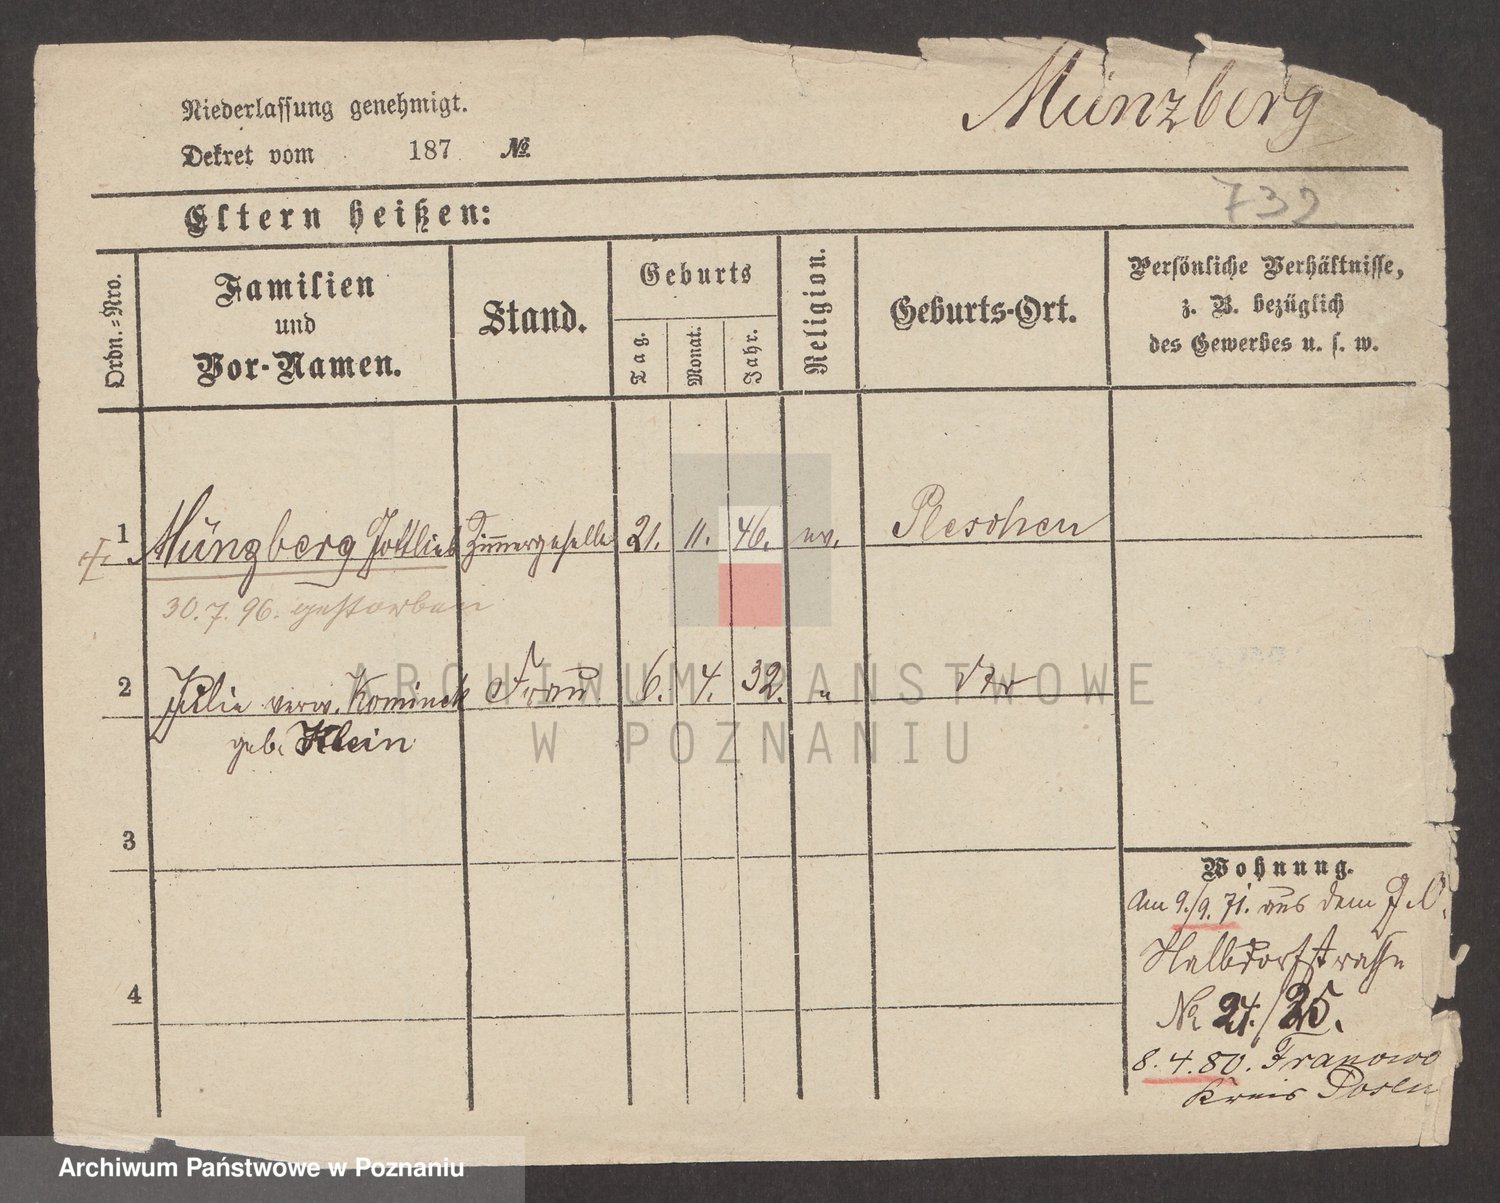 Niederlassung genehmigt.
Münzberg
Dekret vom 187 №
732
Eltern heißen:
Ordn.=Nro.
Familien
und
Vor-Namen.
Stand.
Geburts
Tag.
Monat.
Jahr.
Religion.
Geburts-Ort.
Persönliche Verhältnisse,
z. B. bezüglich
des Gewerbes u. s. w.
1 Münzberg Gottlieb Zimmergeselle 21. 11. 46. ev. Pleschen
30.7.96. gestorben
2 Julie verw. Kominek Frau 6. 4. 32. "
geb. Klein
3
4
Wohnung.
Am 9./9. 71. aus dem
Halbdorfstrasse
№ 24./25.
8.4.80. Franowo
Kreis Posen
ARCHIWUM PAŃSTWOWE
W POZNANIU
Archiwum Państwowe w Poznaniu